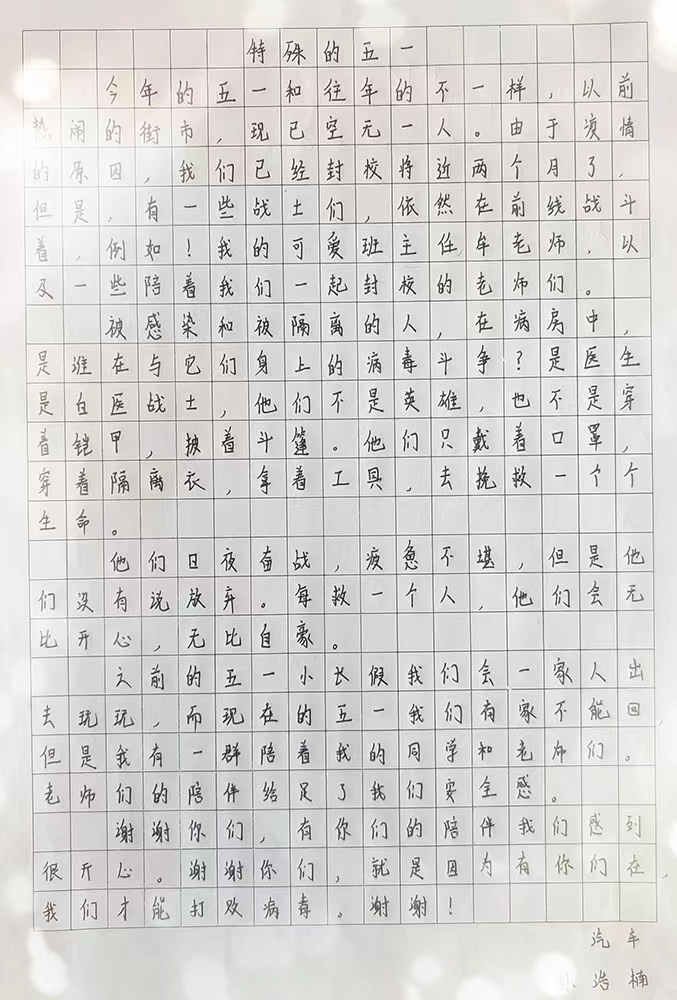 特殊的五一
今年的五一和往年的不一样，以前
热闹的街市，现已空无一人。由于疫情
的原因，我们已经封校将近两个月了，
但是，有一些战士们，依然在前线战斗
着，例如！我的可爱班主任牟老师，以
及一些陪着我们一起封校的老师们。
被感染和被隔离的人，在病房中，
是谁在与它们身上的病毒斗争？是医生
是白医战士，他们不是英雄，也不是穿
着铠甲，披着斗篷。他们只戴着口罩，
穿着隔离衣，拿着工具，去挽救一个个
生命。
他们日夜奋战，疲惫不堪，但是他
们没有说放弃。每救一个人，他们会无
比开心，无比自豪。
之前的五一小长假我们会一家人出
去玩玩，而现在的五一我们有家不能回
但是我有一群陪着我的同学和老师们。
老师们的陪伴给足了我们安全感。
谢谢你们，有你们的陪伴我们感到
很开心。谢谢你们，就是因为有你们在，
我们才能打败病毒。谢谢！
汽车
浩楠